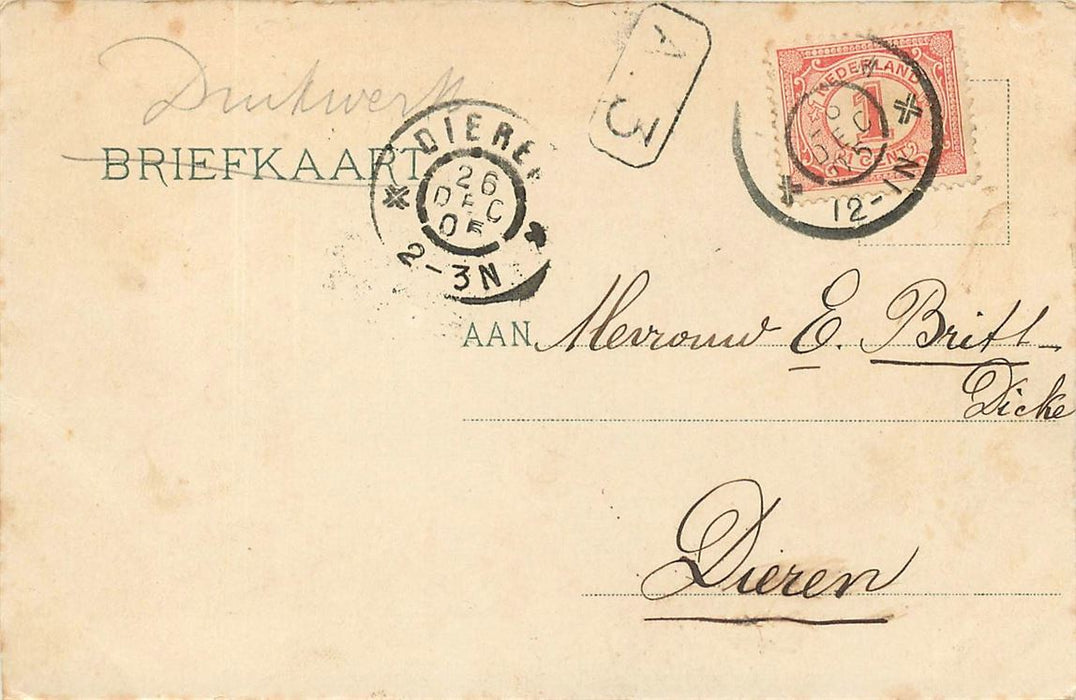 Drukwerk
BRIEFKAART
DIEREN
26
DEC
05
2-3N
A
3
NEDERLAND
1
1 CENT
DEC
12-1N
AAN Mevrouw E. Britt-
Dicke
Dieren